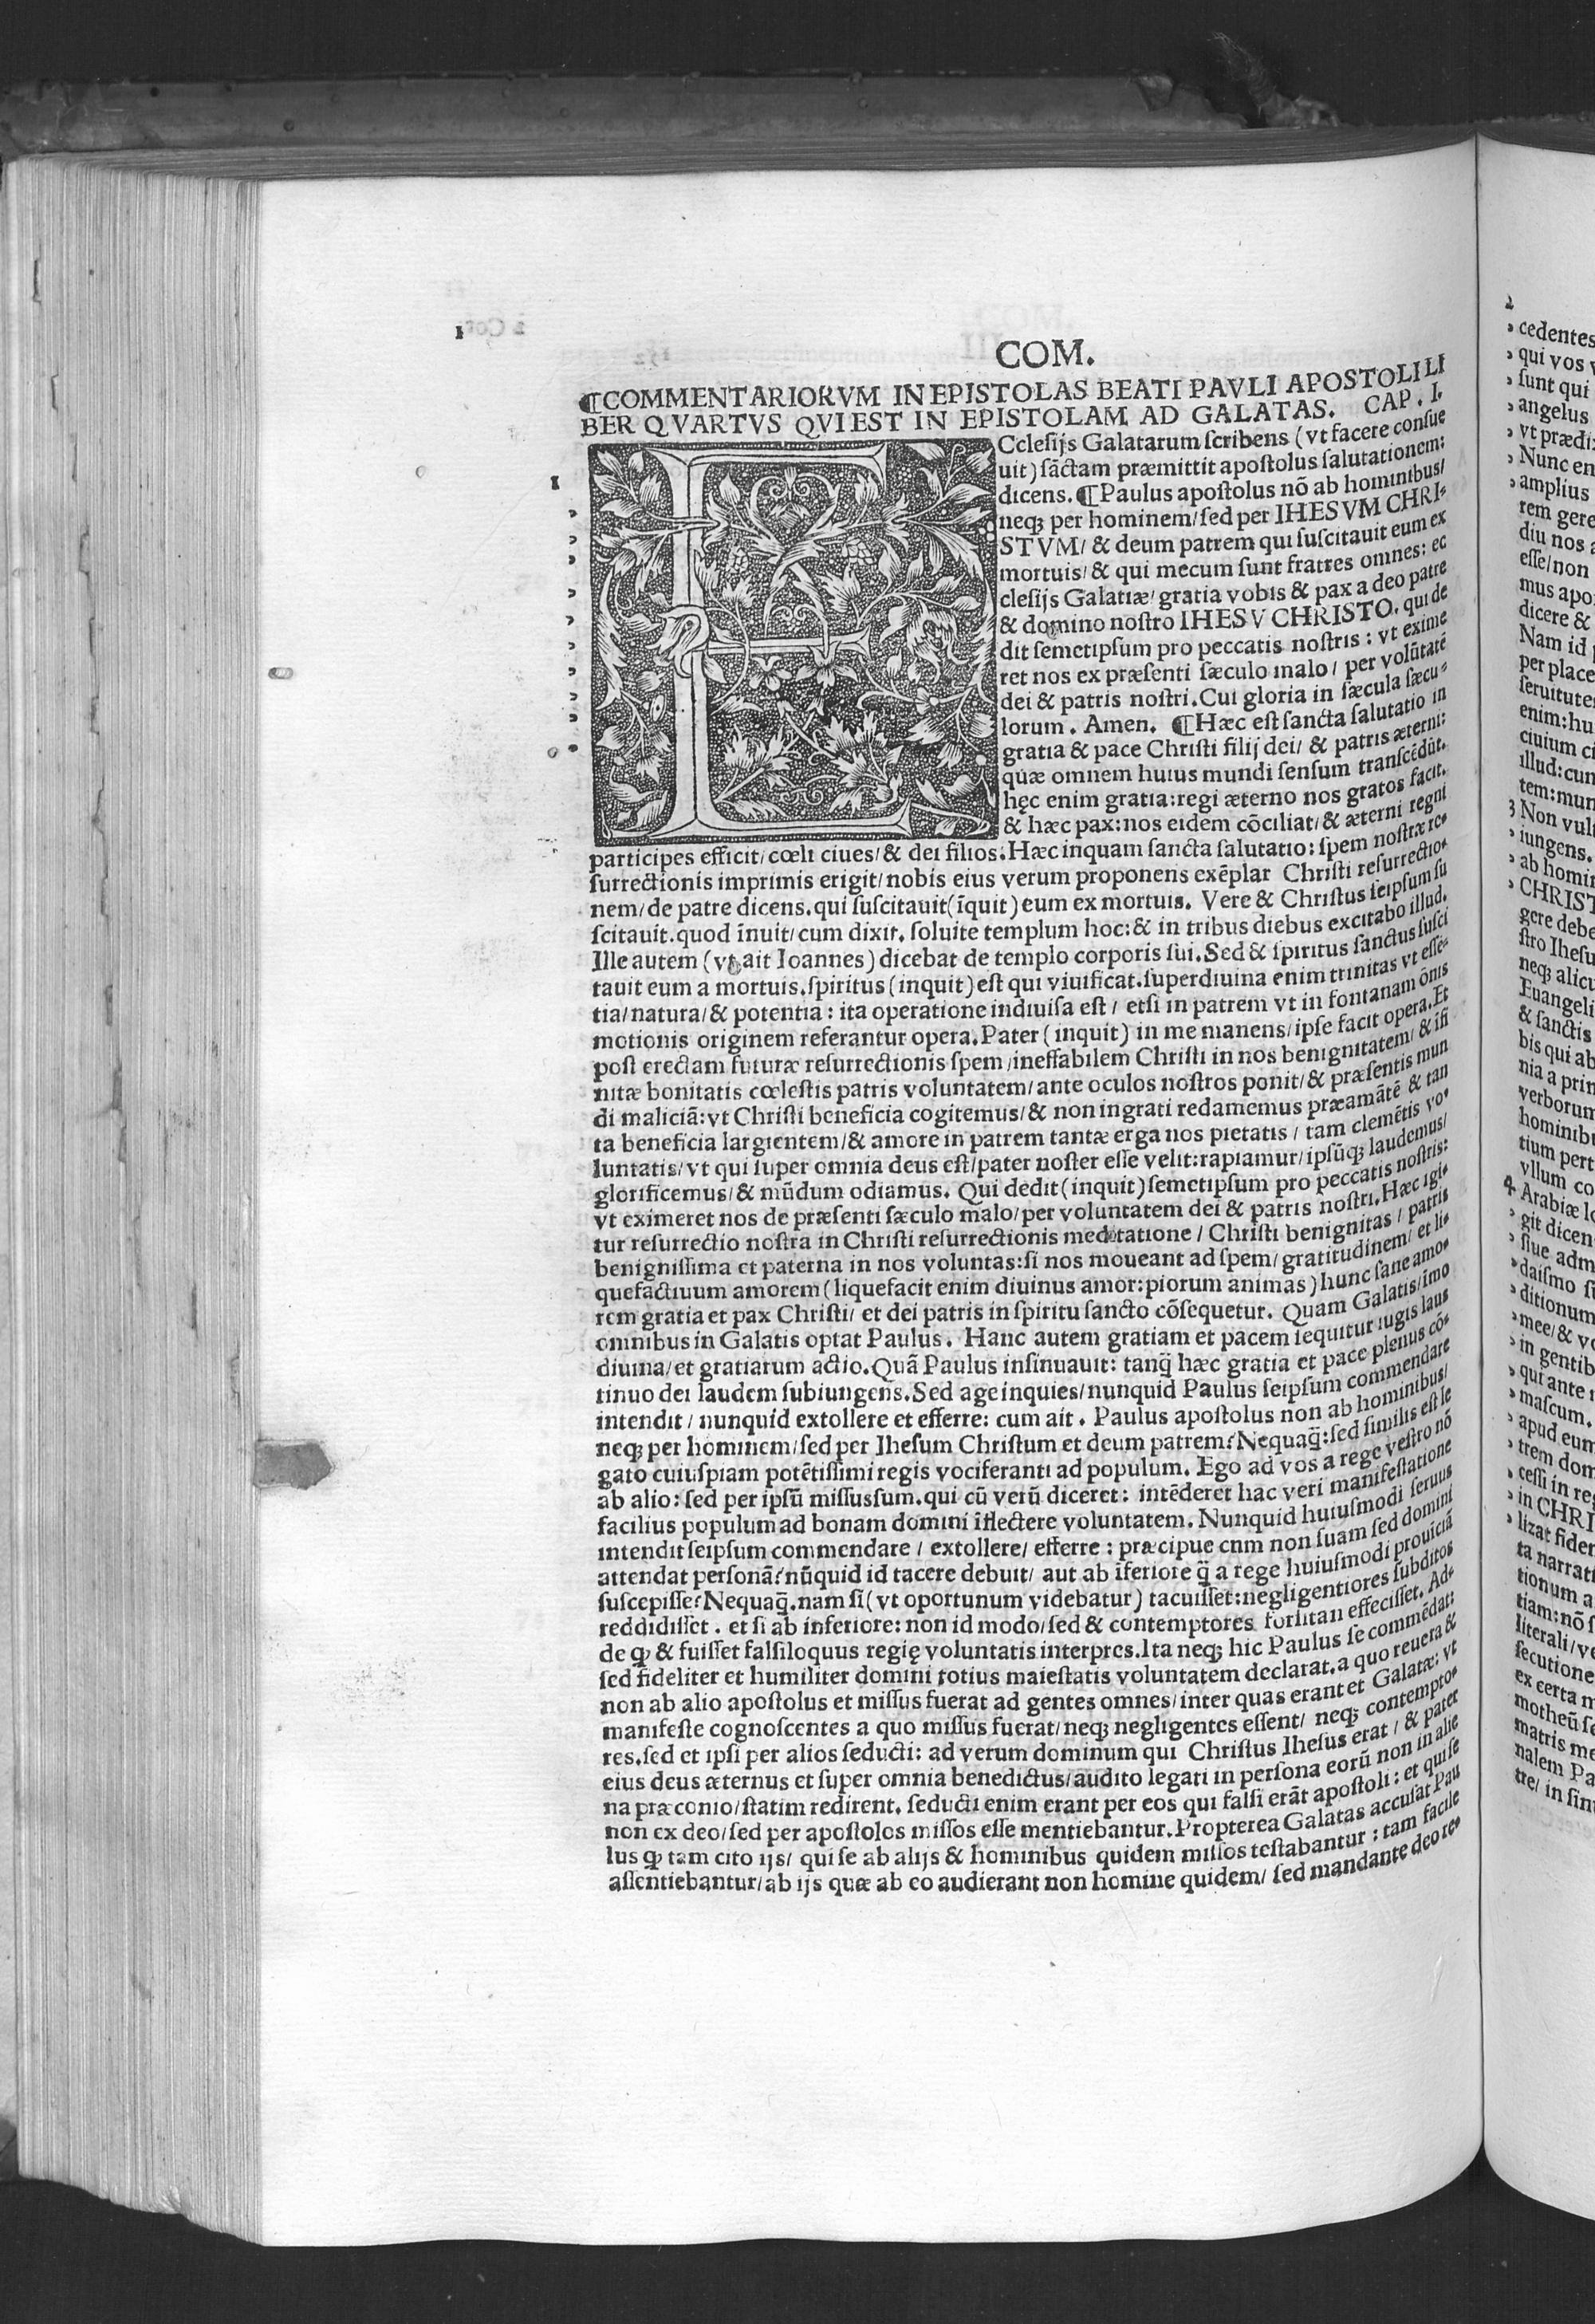 COM.
⁋COMMENTARIORVM IN EPISTOLAS BEATI PAVLI APOSTOLI LI
BER QVARTVS QVI EST IN EPISTOLAM AD GALATAS. CAP. I.
1
ECcleſijs Galatarum ſcribens (vt facere conſue
uit) ſãctam præmittit apoſtolus ſalutationem:
dicens. ⁋Paulus apoſtolus nõ ab hominibus/
neqꝫ per hominem/ ſed per IHESVM CHRI-
STVM/ & deum patrem qui ſuſcitauit eum ex
mortuis/ & qui mecum ſunt fratres omnes: ec
cleſijs Galatiæ/ gratia vobis & pax a deo patre
& domino noſtro IHESV CHRISTO. qui de
dit ſemetipſum pro peccatis noſtris: vt exime
ret nos ex præſenti ſæculo malo/ per volũtatẽ
dei & patris noſtri. Cui gloria in ſæcula ſæcu-
lorum. Amen. ⁋Hæc eſt ſancta ſalutatio in
gratia & pace Chriſti filij dei/ & patris æterni:
quæ omnem huius mundi ſenſum tranſcẽdũt.
hęc enim gratia: regi æterno nos gratos facit.
& hæc pax: nos eidem cõciliat/ & æterni regni
participes efficit/ cœli ciues/ & dei filios. Hæc inquam ſancta ſalutatio: ſpem noſtræ re-
ſurrectionis imprimis erigit/ nobis eius verum proponens exẽplar Chriſti reſurrectio-
nem/ de patre dicens. qui ſuſcitauit (ĩquit) eum ex mortuis. Vere & Chriſtus ſeipſum ſu
ſcitauit. quod ĩnuit/ cum dixit. ſoluite templum hoc: & in tribus diebus excitabo illud.
Ille autem (vt ait Ioannes) dicebat de templo corporis ſui. Sed & ſpiritus ſanctus ſuſci
tauit eum a mortuis. ſpiritus (inquit) eſt qui viuificat. ſuperdiuina enim trinitas vt eſſe-
tia/ natura/ & potentia: ita operatione indiuiſa eſt/ etſi in patrem vt in fontanam õnis
motionis originem referantur opera. Pater (inquit) in me manens/ ipſe facit opera. Et
poſt erectam futuræ reſurrectionis ſpem/ ineffabilem Chriſti in nos benignitatem/ & ĩfi
nitæ bonitatis cœleſtis patris voluntatem/ ante oculos noſtros ponit/ & præſentis mun
di maliciã: vt Chriſti beneficia cogitemus/ & non ingrati redamemus præamãtẽ & tan
ta beneficia largientem/ & amore in patrem tantæ erga nos pietatis/ tam clemẽtis vo-
luntatis/ vt qui ſuper omnia deus eſt/ pater noſter eſſe velit: rapiamur/ ipſũqꝫ laudemus/
glorificemus/ & mũdum odiamus. Qui dedit (inquit) ſemetipſum pro peccatis noſtris:
vt eximeret nos de præſenti ſæculo malo/ per voluntatem dei & patris noſtri. Hæc igi-
tur reſurrectio noſtra in Chriſti reſurrectionis meditatione/ Chriſti benignitas/ patris
benigniſſima et paterna in nos voluntas: ſi nos moueant ad ſpem/ gratitudinem/ et li-
quefactiuum amorem (liquefacit enim diuinus amor: piorum animas) hunc ſane amo-
rem gratia et pax Chriſti/ et dei patris in ſpiritu ſancto cõſequetur. Quam Galatis/ imo
omnibus in Galatis optat Paulus. Hanc autem gratiam et pacem ſequitur iugis laus
diuina/ et gratiarum actio. Quã Paulus inſinuauit: tanq̃ hæc gratia et pace plenus cõ-
tinuo dei laudem ſubiungens. Sed age inquies/ nunquid Paulus ſeipſum commendare
intendit/ nunquid extollere et efferre: cum ait. Paulus apoſtolus non ab hominibus/
neqꝫ per hominem/ ſed per Iheſum Chriſtum et deum patrem? Nequaq̃: ſed ſimilis eſt le
gato cuiuſpiam potẽtiſſimi regis vociferanti ad populum. Ego ad vos a rege veſtro nõ
ab alio: ſed per ipſũ miſſus ſum. qui cũ verũ diceret: intẽderet hac veri manifeſtatione
facilius populum ad bonam domini ĩflectere voluntatem. Nunquid huiuſmodi ſeruus
intendit ſeipſum commendare/ extollere/ efferre: præcipue cnm non ſuam ſed domini
attendat perſonã? nũquid id tacere debuit/ aut ab ĩferiore q̃ a rege huiuſmodi prouiciã
ſuſcepiſſe? Nequaq̃. nam ſi (vt oportunum videbatur) tacuiſſet: negligentiores ſubditos
reddidiſſet. et ſi ab inferiore: non id modo/ ſed & contemptores forſitan effeciſſet. Ad-
de ꝙ & fuiſſet falſiloquus regię voluntatis interpres. Ita neqꝫ hic Paulus ſe commẽdat:
ſed fideliter et humiliter domini totius maieſtatis voluntatem declarat. a quo reuera &
non ab alio apoſtolus et miſſus fuerat ad gentes omnes/ inter quas erant et Galatæ: vt
manifeſte cognoſcentes a quo miſſus fuerat/ neqꝫ negligentes eſſent/ neqꝫ contempto-
res. ſed et ipſi per alios ſeducti: ad verum dominum qui Chriſtus Iheſus erat/ & pater
eius deus æternus et ſuper omnia benedictus/ audito legati in perſona eorũ non in alie
na præconio/ ſtatim redirent. ſeducti enim erant per eos qui falſi erãt apoſtoli: et qui ſe
non ex deo/ ſed per apoſtolos miſſos eſſe mentiebantur. Propterea Galatas accuſat Pau
lus ꝙ tam cito ijs/ qui ſe ab alijs & hominibus quidem miſſos teſtabantur: tam facile
aſſentiebantur/ ab ijs quæ ab eo audierant non homine quidem/ ſed mandante deo re-
2
cedentes
qui vos
ſunt qui
angelus
vt prædi
Nunc en
amplius
rem gere
diu nos
eſſe/ non
mus apo
dicere &
Nam id
per place
ſeruitute
enim: hu
ciuium ci
illud: cun
tem: mun
3 Non vult
iungens.
ab homin
CHRIST
gere debe
ſtro Iheſu
neqꝫ alicu
Euangeli
& ſanctis
bis qui ab
nia a prin
verborum
hominibu
tium pert
vllum co
4 Arabiæ lo
git dicen
ſiue adm
daiſmo ſu
ditionum
mee/ & vo
in gentib
qui ante
maſcum.
apud eum
trem dom
ceſſi in re
in CHRI
lizat fidem
ta narrati
tionum a
tiam: nõ ſ
literali/ ve
ſecutione
ex certa m
motheũ ſe
matris me
nalem Pa
tre/ in ſin